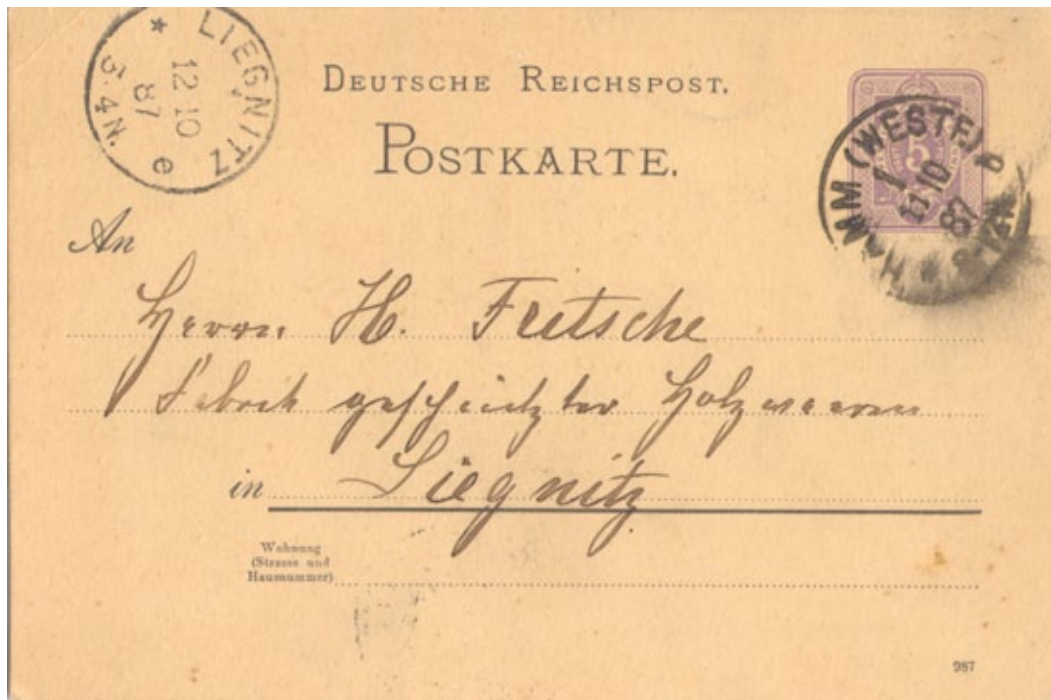 LIEGNITZ
* 12 10 87 e
3.4N.
DEUTSCHE REICHSPOST.
POSTKARTE.
5
HAMM (WESTF)
1
11 10
87
An
Herrn H. Fritsche
Fabrik geschnitzter Holzwaaren
in Liegnitz
Wohnung
(Strasse und
Hausnummer)
987